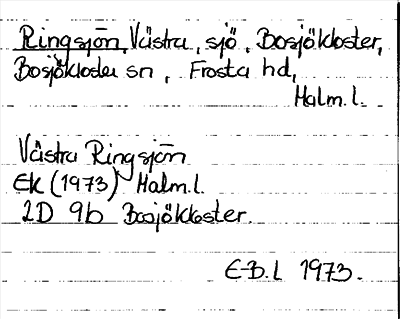 Ringsjön, Västra, sjö, Bosjökloster,
Bosjökloster sn, Frosta hd,
Malm.l.
Västra Ringsjön
Ek (1973) Malm.l.
2D 9b Bosjökloster.
E-B.L 1973.